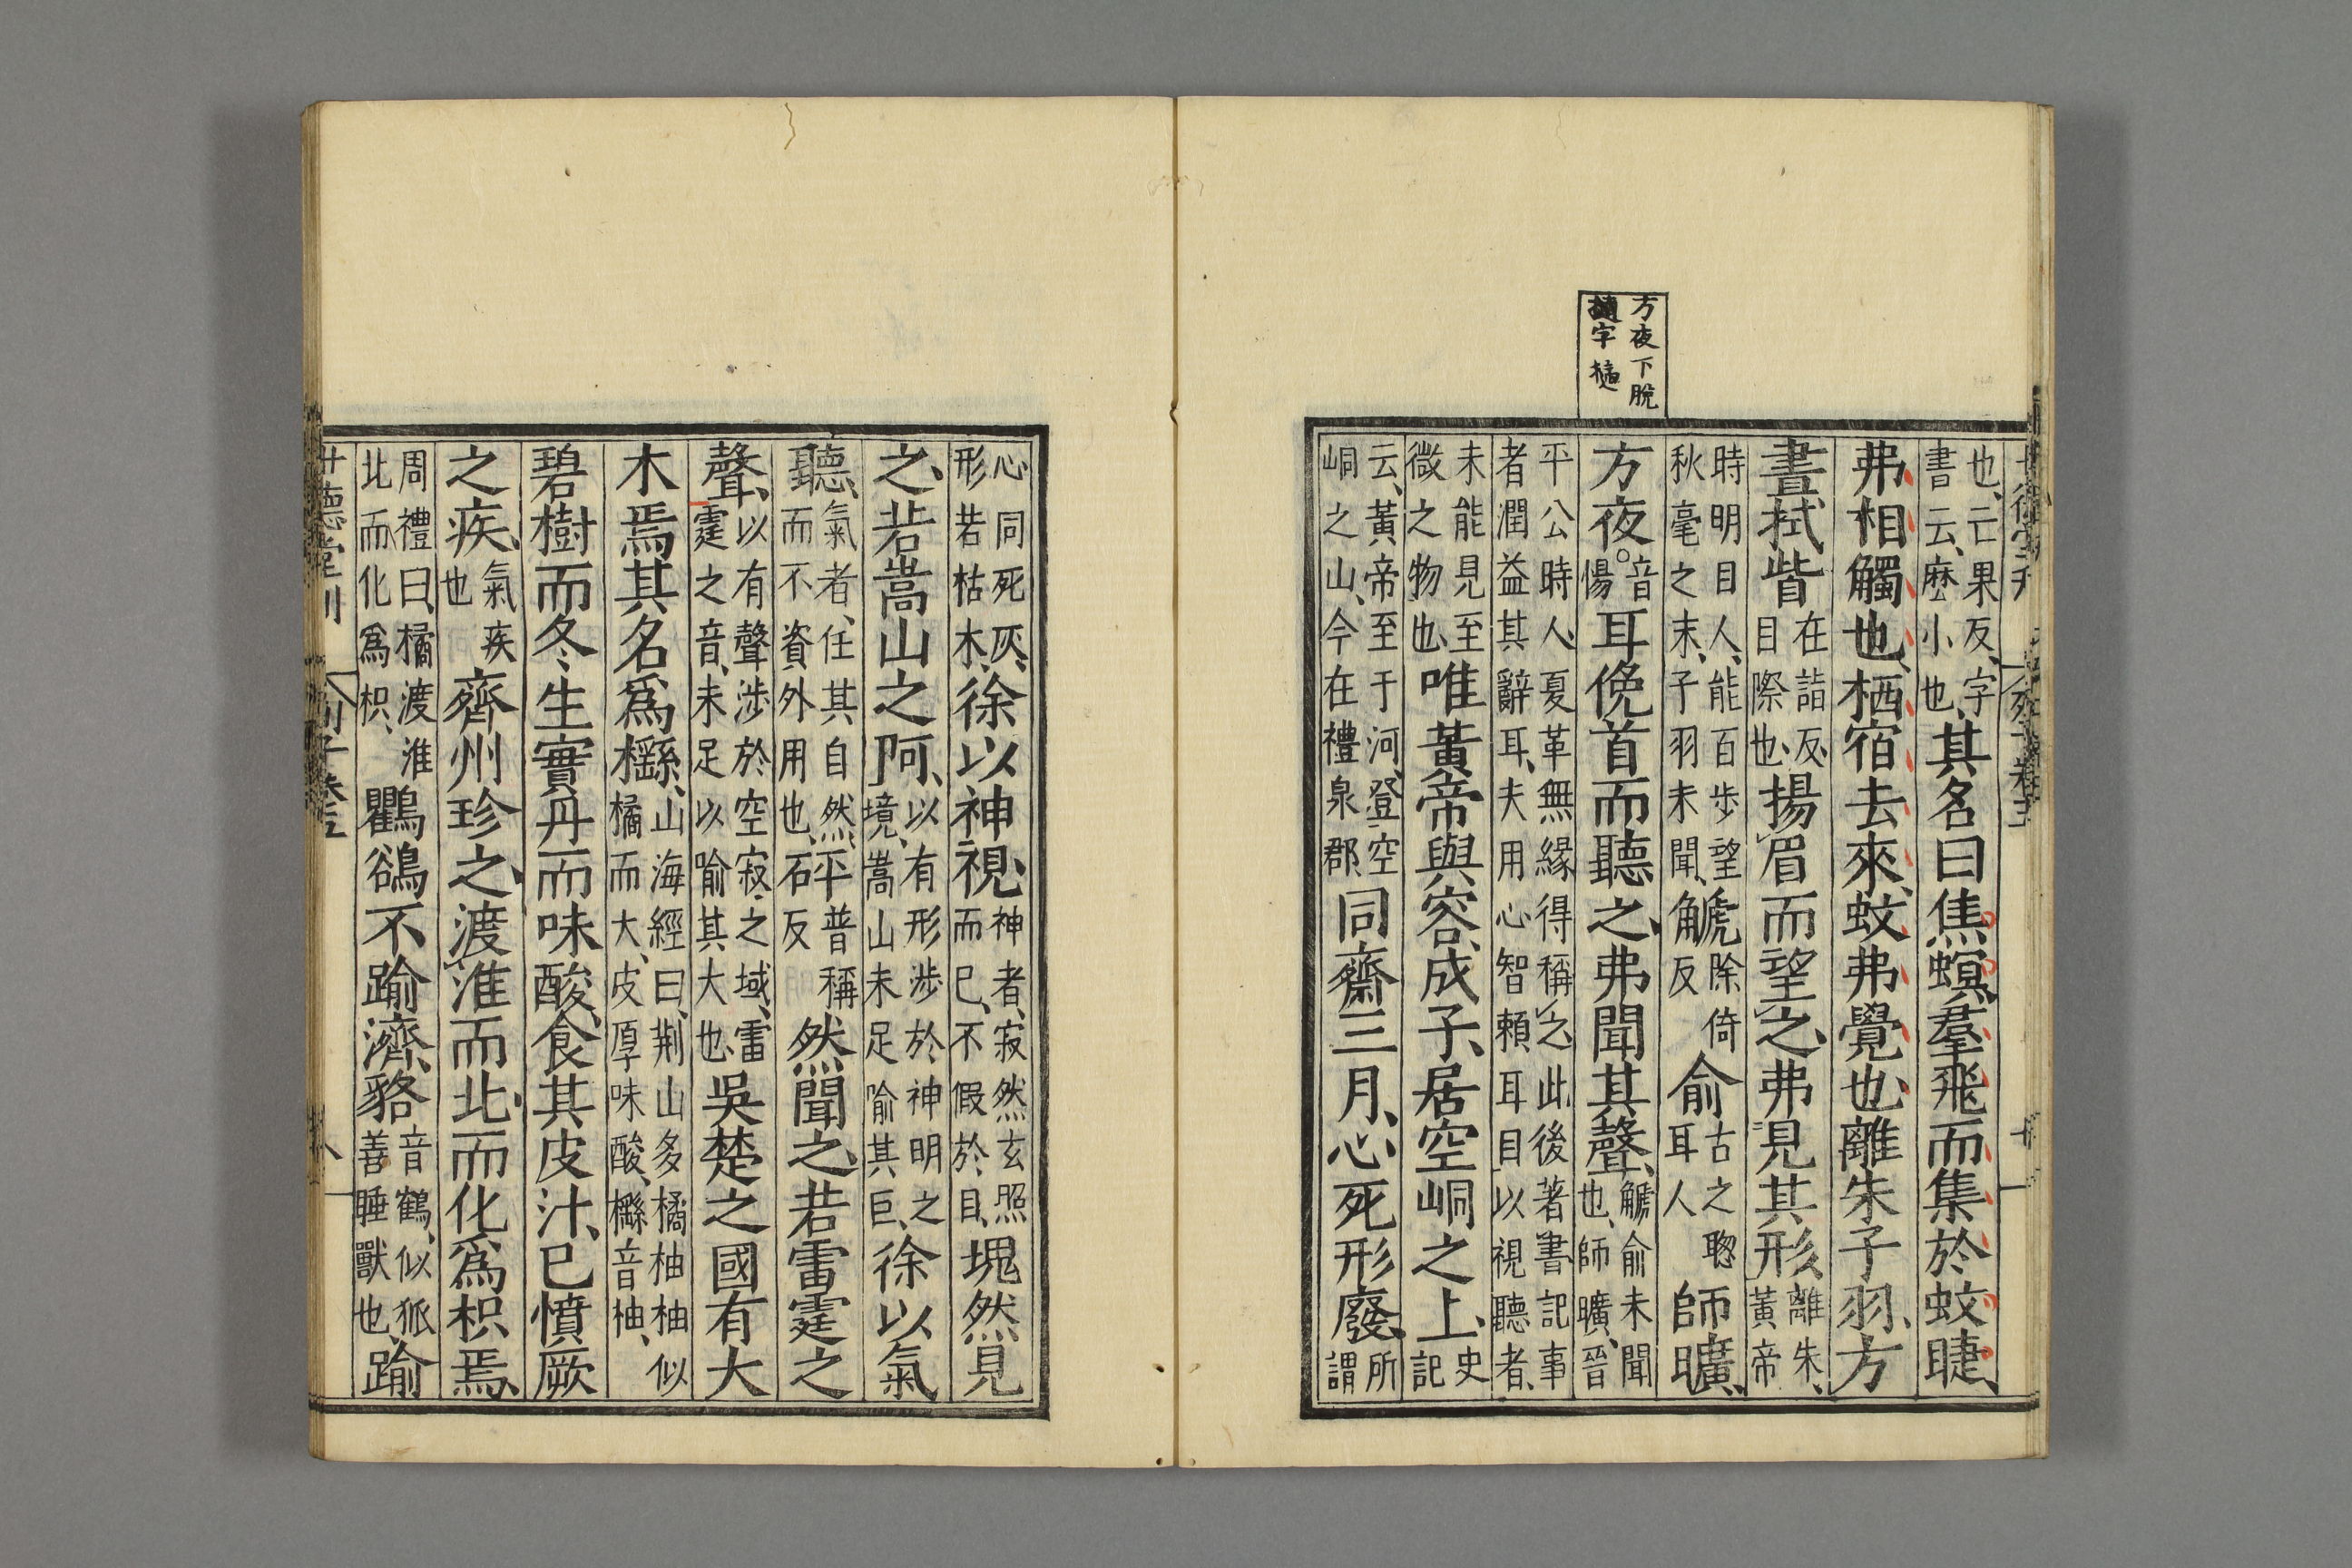 方夜下脫
擿字 𢷋
也、亡果反、字
書云、麽小也、其名曰焦螟、羣飛而集於蚊睫、
弗相觸也、栖宿去來、蚊弗覺也、離朱子羽、方
晝拭眥在詣反、目際也、揚眉而望之、弗見其形、離朱、黃帝
時明目人、能百步望秋毫之末、子羽未聞、𧣾除倚反俞古之聦耳人師曠、
方夜○音傷耳俛首而聽之、弗聞其聲、𧣾俞未聞也、師曠、晉
平公時人、夏革無緣得稱之、此後著書記事者潤益其辭耳、夫用心智賴耳目以視聽者、
未能見至微之物也、唯黃帝與容成子、居空峒之上、史記
云、黃帝至于河、登空峒之山、今在禮泉郡、同齋三月、心死形廢、所謂
心同死灰、形若枯木、徐以神視、神者、寂然玄照而已、不假於目、塊然見
之、若嵩山之阿、以有形涉於神明之境、嵩山未足喻其巨、徐以氣
聽、氣者、任其自然而不資外用也、砰普稱反然聞之、若雷霆之
聲、以有聲涉於空寂之域、雷霆之音、未足以喻其大也、吳楚之國有大
木焉、其名爲櫾、山海經曰、荊山多橘柚柚似橘而大、皮厚味酸、櫾音柚、
碧樹而冬生、實丹而味酸、食其皮汁、已憤厥
之疾、氣疾也齊州珍之、渡淮而北、而化爲枳焉、
周禮曰、橘渡淮北而化爲枳、鸜鵒不踰濟、貉音鶴、似狐善睡獸也、踰
世德堂刊 列子卷五 八